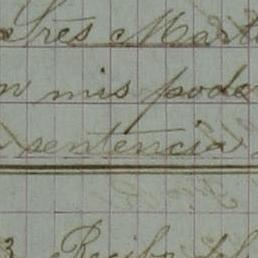 Srés Mart
n mis pode
sentencia
3 Recibo